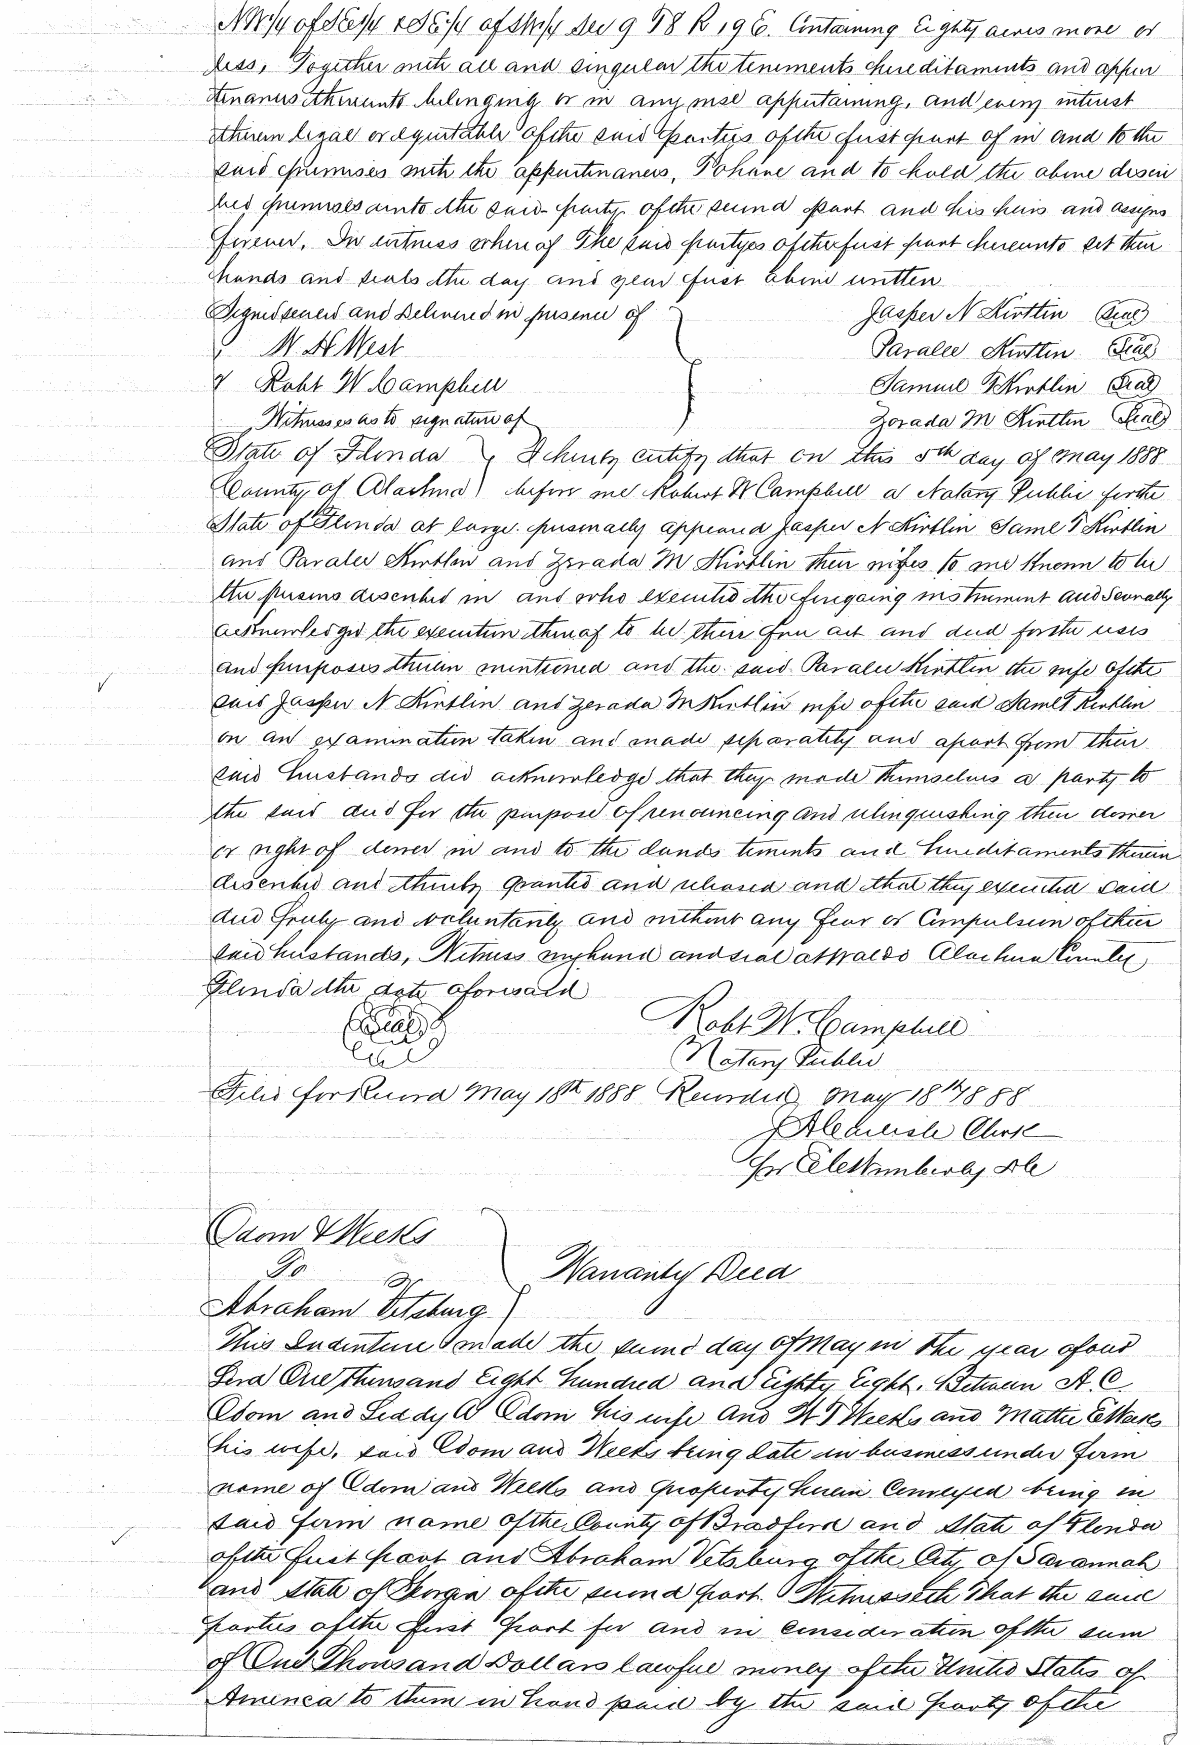 NW¼ of SE¼ & SE¼ of SW¼ Sec 9 T8 R 19 E. Containing Eighty acres more or
less, Together with all and singular the tenements hereditaments and appur
tenances thereunto belonging or in any wise appertaining, and every interest
therein legal or equitable of the said parties of the first part of in and to the
said premises with the appurtinances, To have and to hold the above descri
bed premises unto the said party of the second part and his heirs and assigns
forever. In witness where of The said partyes of the first part hereunto set their
hands and seals the day and year first above written
Signed sealed and Delivered in presence of
W. H West
& Robt W Campbell
Witnesses as to signature of
Jasper N Kirtlin (Seal)
Paralee Kirtlin (Seal)
Samuel T Kirtlin (Seal)
Zorada M Kirtlin (Seal)
State of Florida } I hereby certify that on this 5th day of May 1888
County of Alachua } before me Robert W Campbell a Notary Public for the
State of Florida at large personally appeared Jasper N Kirtlin Saml T Kirtlin
and Paralee Kirtlin and Zorada M Kirtlin their wifes to me known to be
the persons described in and who executed the foregoing instrument and severally
acknowledged the execution thereof to be their free act and deed for the uses
and purposes therein mentioned and the said Paralee Kirtlin the wife of the
said Jasper N Kirtlin and Zerada M Kirtlin wife of the said Saml T Kirtlin
on an examination taken and made separately and apart from their
said husbands did acknowledge that they made themselves a party to
the said deed for the purpose of renouncing and relinquishing their dower
or right of dower in and to the lands tements and hereditaments therein
described and thereby granted and released and that they executed said
deed freely and voluntarily and without any fear or Compulsion of their
said husbands, Witness my hand and seal at Waldo Alachua County
Florida the date aforesaid
(Seal) Robt W. Campbell
Notary Public
Filed for Record May 18th 1888 Recorded May 18th 1888
Clerk
Odom & Weeks
To
Abraham Vetsburg
Warranty Deed
This Indenture made the second day of May in the year of our
Lord One Thousand Eight hundred and Eighty Eight. Between A. C.
Odom and Leddy A Odom his wife and W T Weeks and Mattie E Weeks
his wife, said Odom and Weeks being late in business under firm
name of Odom and Weeks and property herein Conveyed being in
said firm name of the County of Bradford and State of Florida
of the first part and Abraham Vetsburg of the City of Savannah
and state of Georgia of the second part. Witnesseth That the said
parties of the first part for and in consideration of the sum
of One Thousand Dollars lawful money of the United States of
America to them in hand paid by the said party of the